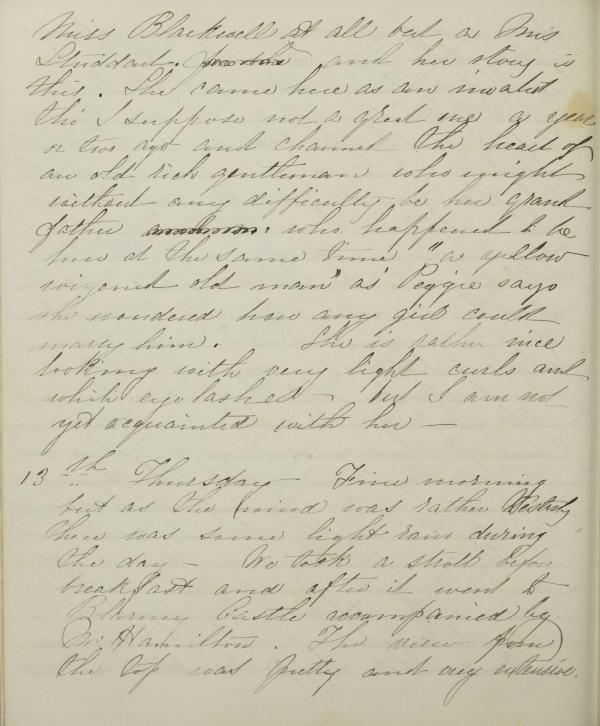 Miss Blackwell at all but a Miss
Studdart. and her story is
this. She came here as an invalid
tho' I suppose not a great one a year
or two ago and charmed the heart of
an old rich gentleman who might
without any difficulty be her grand
father who happened to be
here at the same time "a yellow
wizened old man" as Peggie says
she wondered how any girl could
marry him. She is rather nice
looking with very light curls and
white eye lashes - but I am not
yet acquainted with her -
13th Thursday - Fine morning
but as the wind was rather Westerly
there was some light rain during
the day - We took a stroll before
breakfast and after it went to
Blarney Castle accompanied by
Mr Hamilton. The view from
the top was pretty and very extensive.